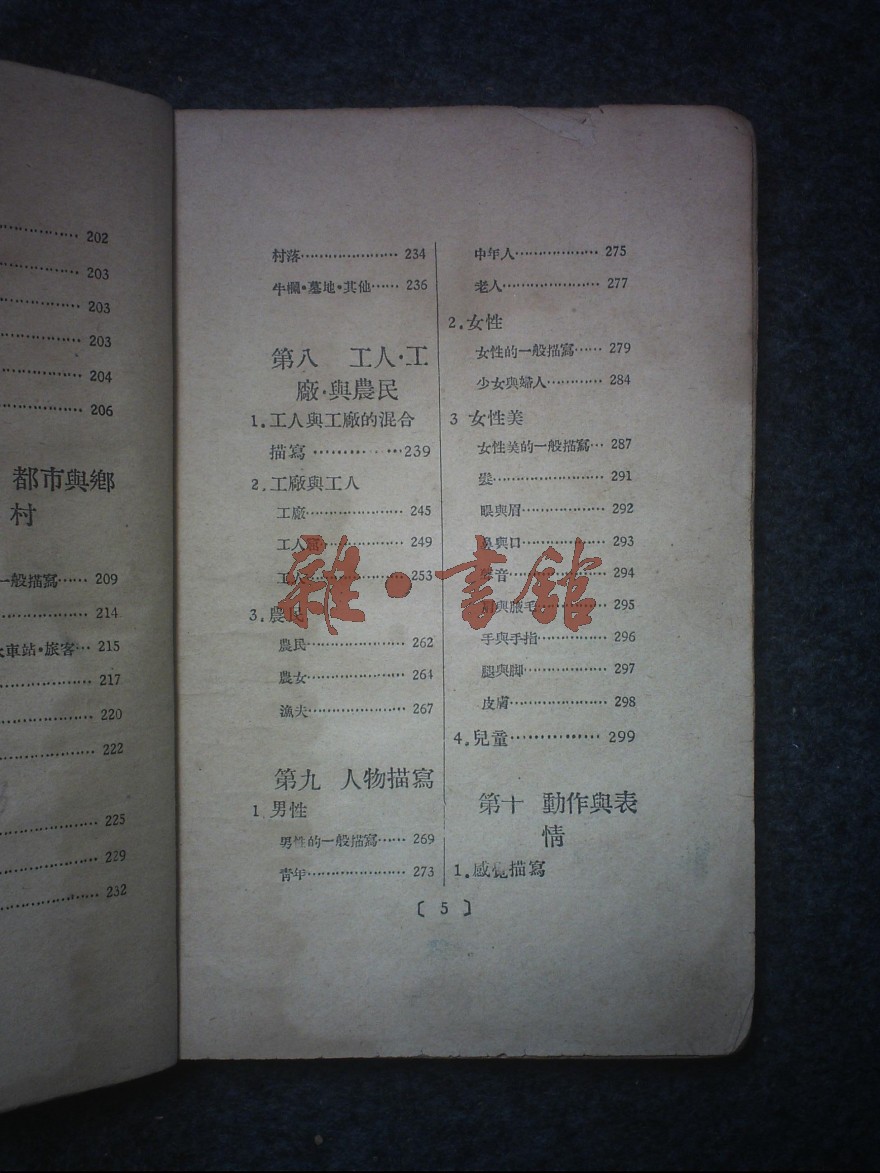 202
203
203
203
204
206
都市與鄉
村
一般描寫…… 209
214
車站•旅客… 215
217
220
222
225
229
232
村落………………… 234
牛欄•墓地•其他…… 236
第八 工人·工
廠·與農民
1.工人與工廠的混合
描寫 ……………239
2.工廠與工人
工廠………………… 245
工人………………… 249
工人………………… 253
3.農民
農民………………… 262
農女………………… 264
漁夫………………… 267
第九 人物描寫
1 男性
男性的一般描寫…… 269
青年………………… 273
中年人……………… 275
老人………………… 277
2.女性
女性的一般描寫…… 279
少女與婦人………… 284
3 女性美
女性美的一般描寫… 287
髮………………… 291
眼與眉……………… 292
鼻與口……………… 293
聲音………………… 294
與腋毛………… 295
手與手指………… 296
腿與脚……………… 297
皮膚………………… 298
4.兒童…………… 299
第十 動作與表
情
1.感覺描寫
〔 5 〕
雜·書館